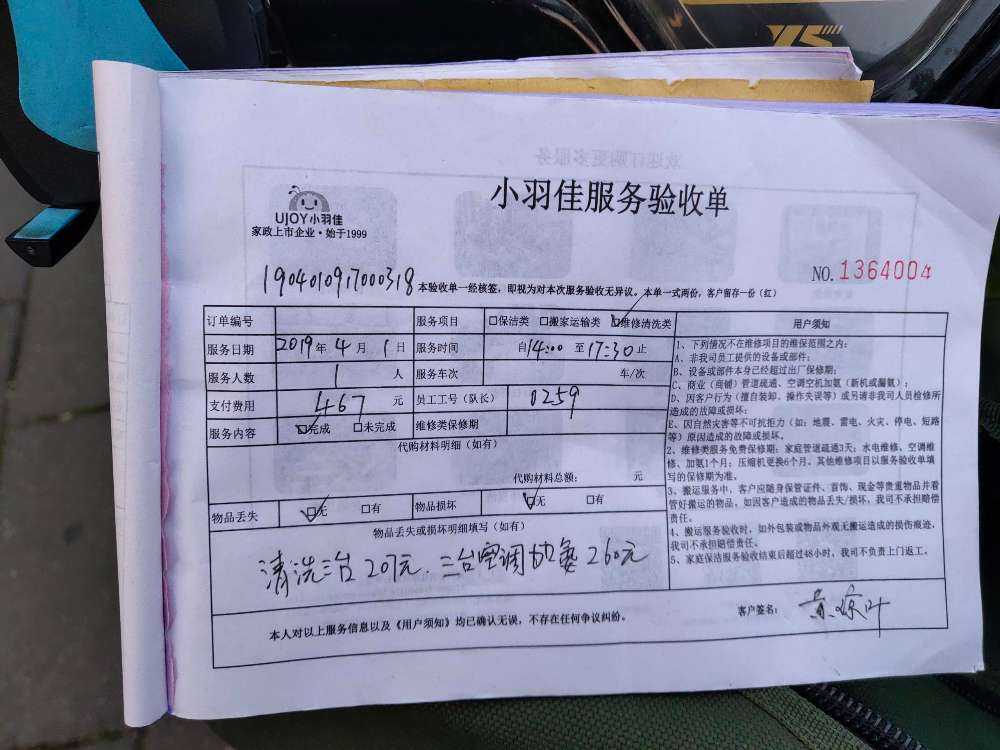 小羽佳服务验收单
UJOY小羽佳
家政上市企业·始于1999
NO.1364004
1904010917000318
本验收单一经核签，即视为对本次服务验收无异议。本单一式两份，客户留存一份（红）
订单编号 服务项目 □保洁类 □搬家运输类 ☑维修清洗类
服务日期 2019年 4月 1日 服务时间 自14:00 至17:30止
服务人数 1 人 服务车次 车/次
支付费用 467 元 员工工号（队长） 0259
服务内容 ☑完成 □未完成 维修类保修期
代购材料明细（如有）
代购材料总额： 元
物品丢失 ☑无 □有 物品损坏 ☑无 □有
物品丢失或损坏明细填写（如有）
清洗三台207元.三台空调加氨260元
本人对以上服务信息以及《用户须知》均已确认无误，不存在任何争议纠纷。
客户签名：
用户须知
1、下列情况不在维修项目的维保范围之内：
A、非我司员工提供的设备或部件；
B、设备或部件本身已经超过出厂保修期；
C、商业（商铺）管道疏通、空调空机加氨（新机或漏氨）；
D、因客户行为（擅自装卸、操作失误等）或另请非我司人员检修所
造成的故障或损坏；
E、因自然灾害等不可抗拒力（如：地震、雷电、火灾、停电、短路
等）原因造成的故障或损坏。
2、维修类服务免费保修期：家庭管道疏通3天；水电维修、空调维
修、加氨1个月；压缩机更换6个月。其他维修项目以服务验收单填
写的保修期为准。
3、搬运服务中，客户应随身保管证件、首饰、现金等贵重物品并看
管好搬运的物品，如因客户造成的物品丢失/损坏，我司不承担赔偿
责任。
4、搬运服务验收时，如外包装或物品外观无搬运造成的损伤痕迹，
我司不承担赔偿责任。
5、家庭保洁服务验收结束后超过48小时，我司不负责上门返工。